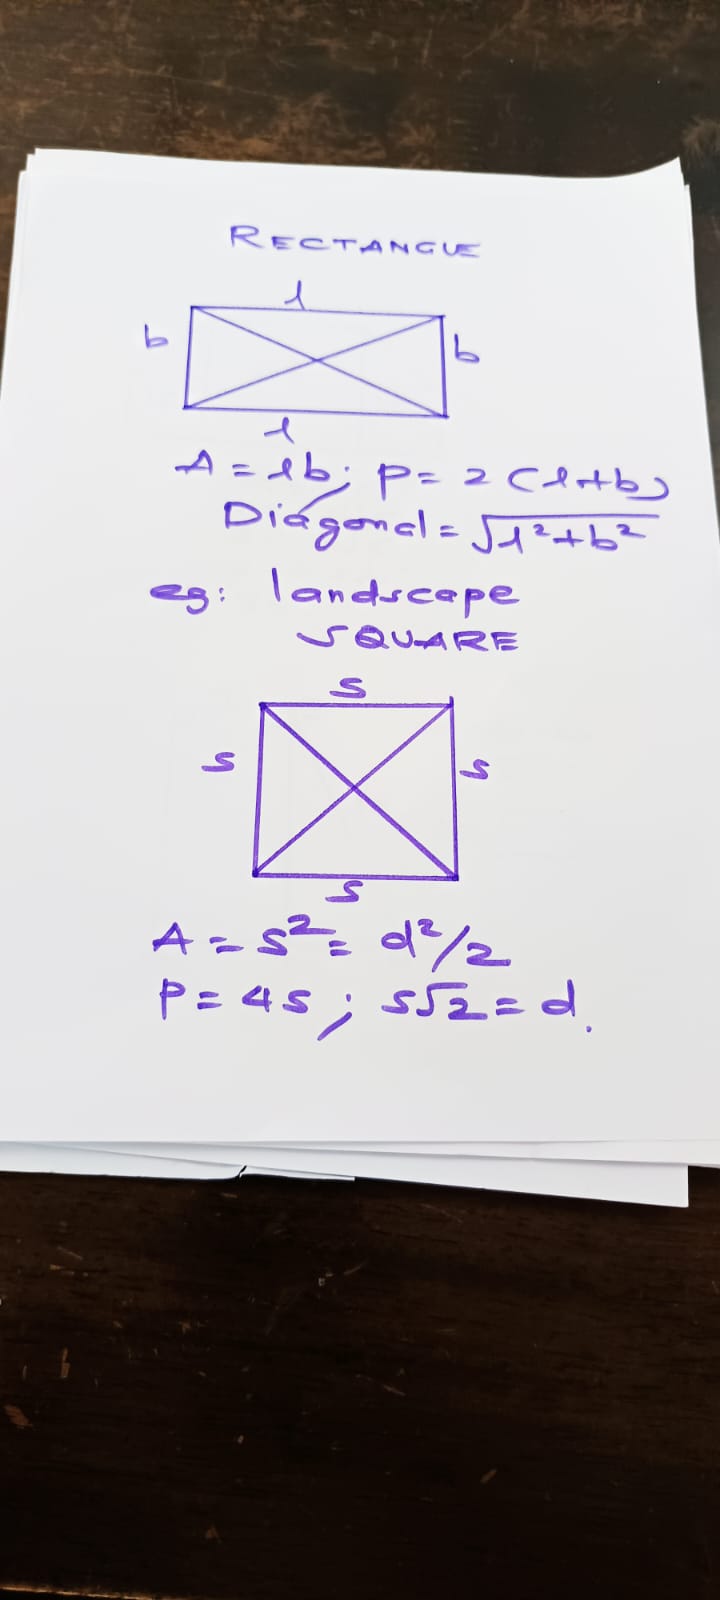 RECTANGLE
l
b
b
l
A = lb; P = 2 (l+b)
Diagonal = √l²+b²
eg: landscape
SQUARE
s
s
s
s
A = s² = d²/2
P = 4s ; s√2 = d.